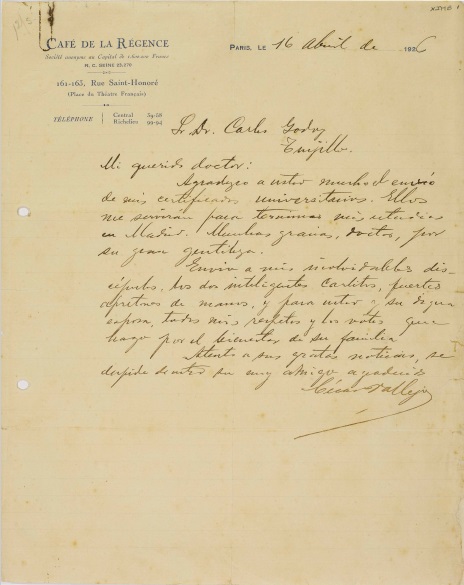 CAFÉ DE LA RÉGENCE
Société anonyme au Capital de 1.800.000 Francs
R. C. SEINE 59.570
161-163, Rue Saint-Honoré
(Place du Théâtre Français)
TÉLÉPHONE
Central
Richelieu
PARIS, LE 16 Abril de 1926
Sr. Dr. Carlos Godoy
Trujillo.
Mi querido doctor:
Agradezco a usted mucho el envío
de mis certificados universitarios. Ellos
me servirán para terminar mis estudios
en Madrid. Muchas gracias, doctor, por
su gran gentileza.
Envío a mis inolvidables dis-
cípulos, los dos inteligentes Carlitos, fuertes
apretones de manos, y para usted y su digna
esposa, todos mis respetos y los votos que
hago por el bienestar de su familia.
Atento a sus gratas noticias, se
despide de usted su muy amigo agradecido
César Vallejo